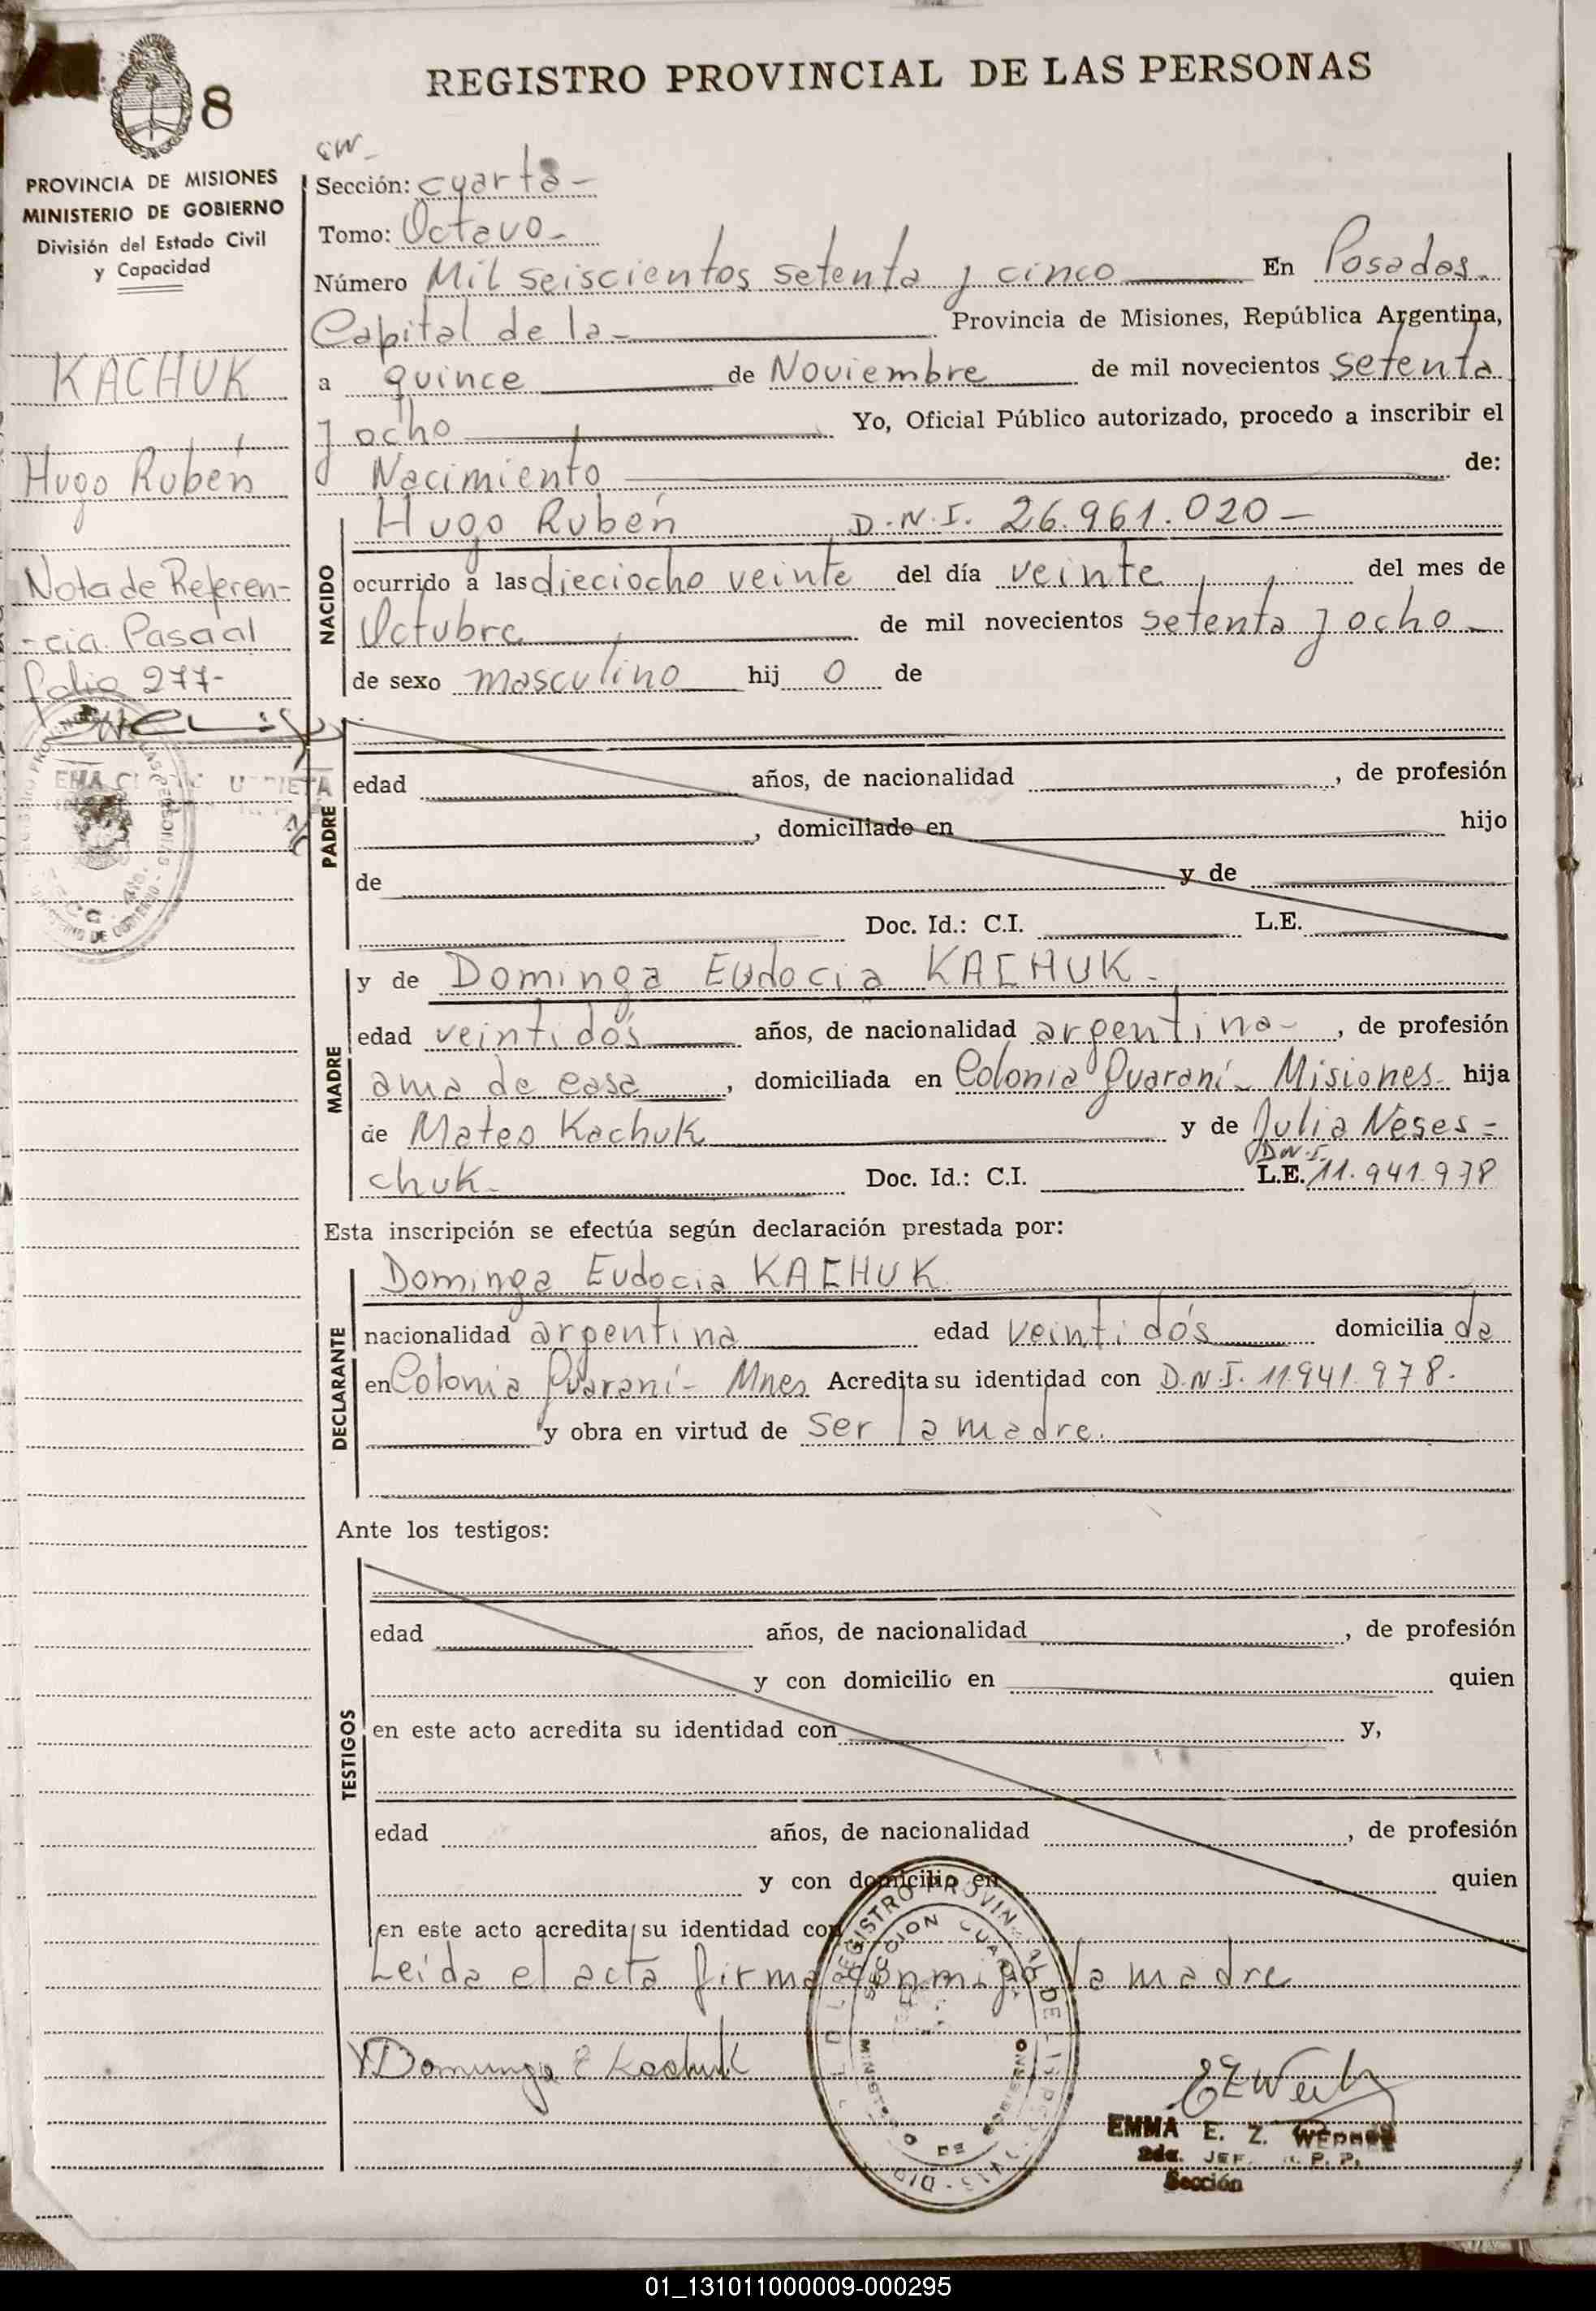 8
REGISTRO PROVINCIAL DE LAS PERSONAS
PROVINCIA DE MISIONES
MINISTERIO DE GOBIERNO
División del Estado Civil
y Capacidad
KACHUK
Hugo Rubén
Nota de Referen-
-cia. Pasa al
folio 277-
Sección: cuarta-
Tomo: Octavo-
Número Mil seiscientos setenta y cinco En Posadas.
Capital de la- Provincia de Misiones, República Argentina,
a quince de Noviembre de mil novecientos setenta
y ocho Yo, Oficial Público autorizado, procedo a inscribir el
Nacimiento de:
NACIDO
Hugo Rubén D.N.I. 26.961.020-
ocurrido a las dieciocho veinte del día veinte del mes de
Octubre de mil novecientos setenta y ocho-
de sexo masculino hij o de
PADRE
edad años, de nacionalidad , de profesión
, domiciliado en hijo
de y de
Doc. Id.: C.I. L.E.
MADRE
y de Dominga Eudocia KACHUK.
edad veintidós años, de nacionalidad argentina- , de profesión
ama de casa , domiciliada en Colonia Guaraní- Misiones- hija
de Mateo Kachuk y de Julia Neses=
D.N.I.
chuk- Doc. Id.: C.I. L.E. 11.941.978
Esta inscripción se efectúa según declaración prestada por:
DECLARANTE
Dominga Eudocia KACHUK
nacionalidad argentina edad veintidós domicilia da
en Colonia Guaraní- Mnes Acredita su identidad con D.N.I. 11.941.978.
y obra en virtud de ser la madre.
Ante los testigos:
TESTIGOS
edad años, de nacionalidad , de profesión
y con domicilio en quien
en este acto acredita su identidad con y,
edad años, de nacionalidad , de profesión
y con domicilio en quien
en este acto acredita su identidad con
Leída el acta firma conmigo la madre
Dominga E Kachuk
REGISTRO PROVINCIAL DE
SECCION CUARTA
MINISTERIO DE GOBIERNO
EMMA E. Z.
2da. JEF.
Sección
01_131011000009-000295